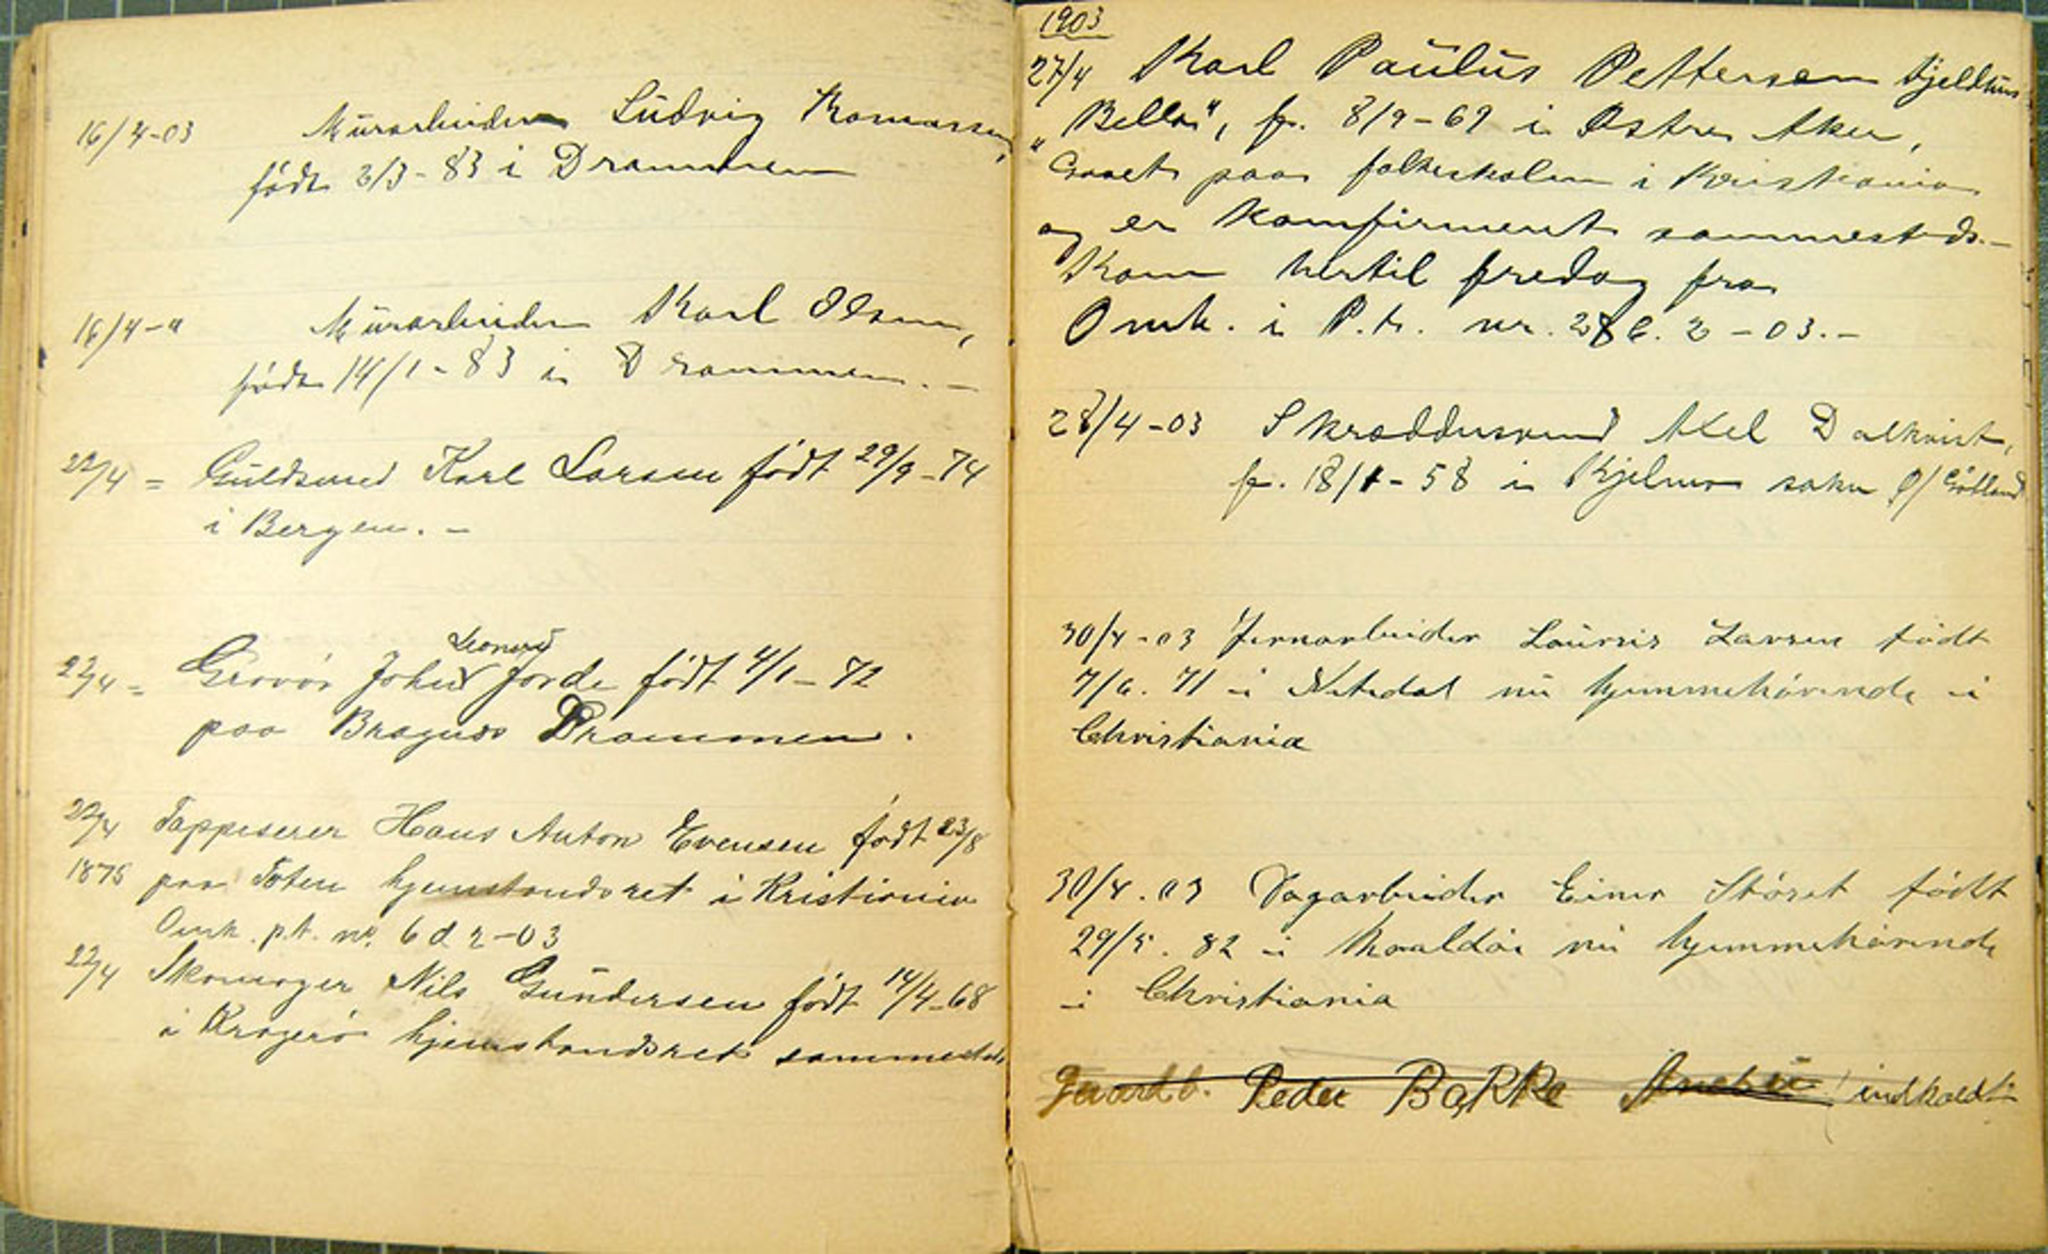 16/4-03 Murarbeider Ludvig Thomassen,
født 2/3-83 i Drammen
16/4-" Murarbeider Karl Olsen,
født 14/1-83 i Drammen. -
22/4 = Guldsmed Karl Larsen født 29/9-74
i Bergen. -
Leonard
22/4 = Gravør Johan Jorde født 4/1-72
paa Bragnæs Drammen.
22/4 Tappeserer Hans Anton Evensen født 23/8
1875 paa Toten hjemstandsret i Kristiania
Omk. p.t. no. 6 d 2-03
22/4 Skomager Nils Gundersen født 14/4-68
i Kragerø hjemstandsret sammesteds
1903
27/4 Karl Paulus Pettersen kjeldens
"Bella", f. 8/9-69 i Østre Aker,
Gaaet paa folkeskolen i Kristiania
og er komfirmert sammesteds. -
Kom hertil fredag fra
Omk. i P.t. nr. 2 8/6. 2-03. -
28/4-03 Skræddersvend Axel Dalkvist,
f. 18/1-58 i Kjelmo sokn Ø/Götland
30/4-03 Jernarbeider Lauris Larsen født
7/6. 71 i Nitedal nu hjemmehørende i
Christiania
30/4.03 Dagarbeider Einar Støret født
29/5. 82 i nu hjemmehørende
i Christiania
Gaardb. Peder Bakke indkaldt